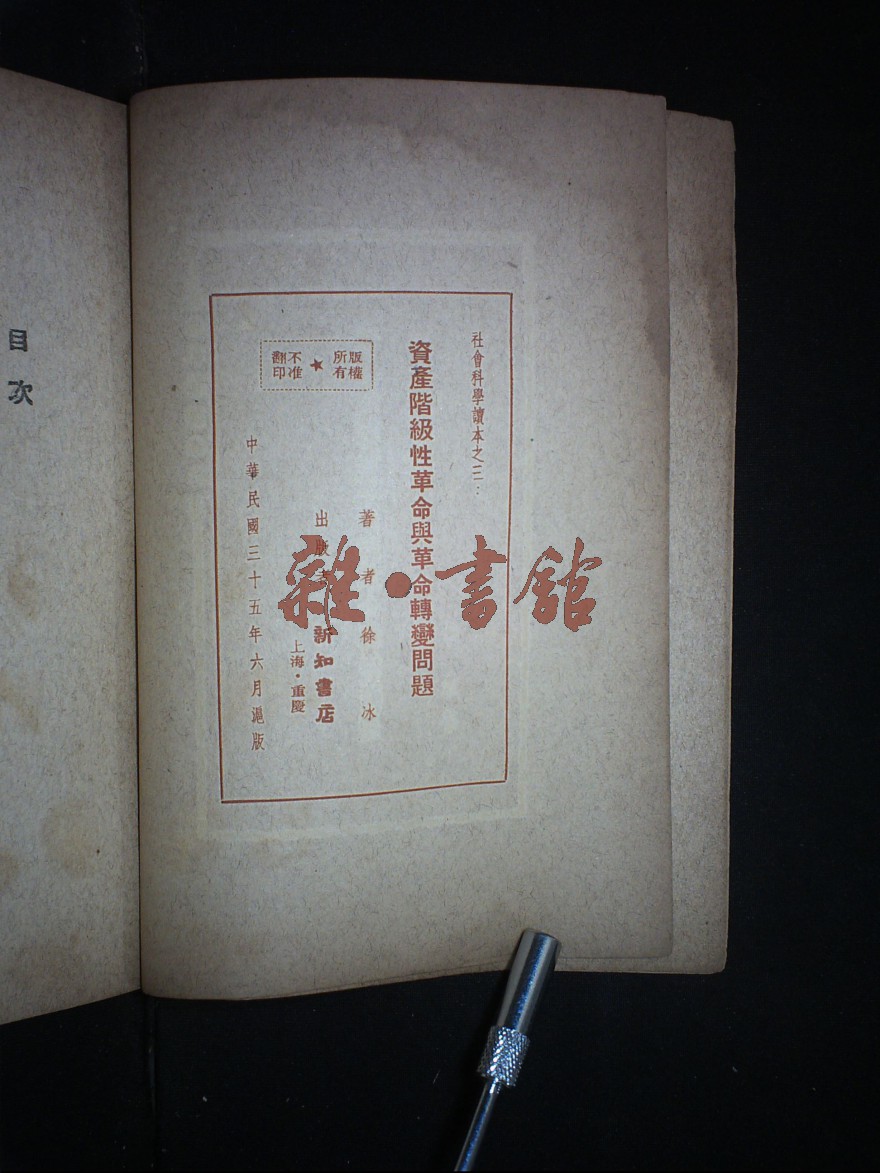 社會科學讀本之三：
資產階級性革命與革命轉變問題
版權所有★不准翻印
著者徐冰
出版者 新知書店
上海·重慶
中華民國三十五年六月滬版
目次
雜·書館